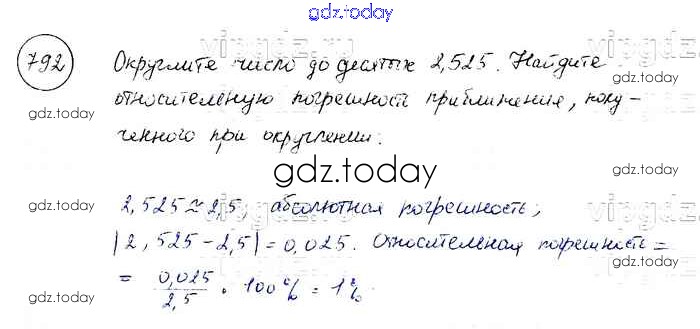 gdz.today
792
Округлите число до десятых 2,525. Найдите
относительную погрешность приближения, полу-
ченного при округлении.
gdz.today
gdz.today
gdz.today
gdz.today
2,525 ≈ 2,5, абсолютная погрешность;
|2,525 - 2,5| = 0,025. Относительная погрешность =
= 0,025/2,5 · 100% = 1%
gdz.today
gdz.today
gdz.today
gdz.today